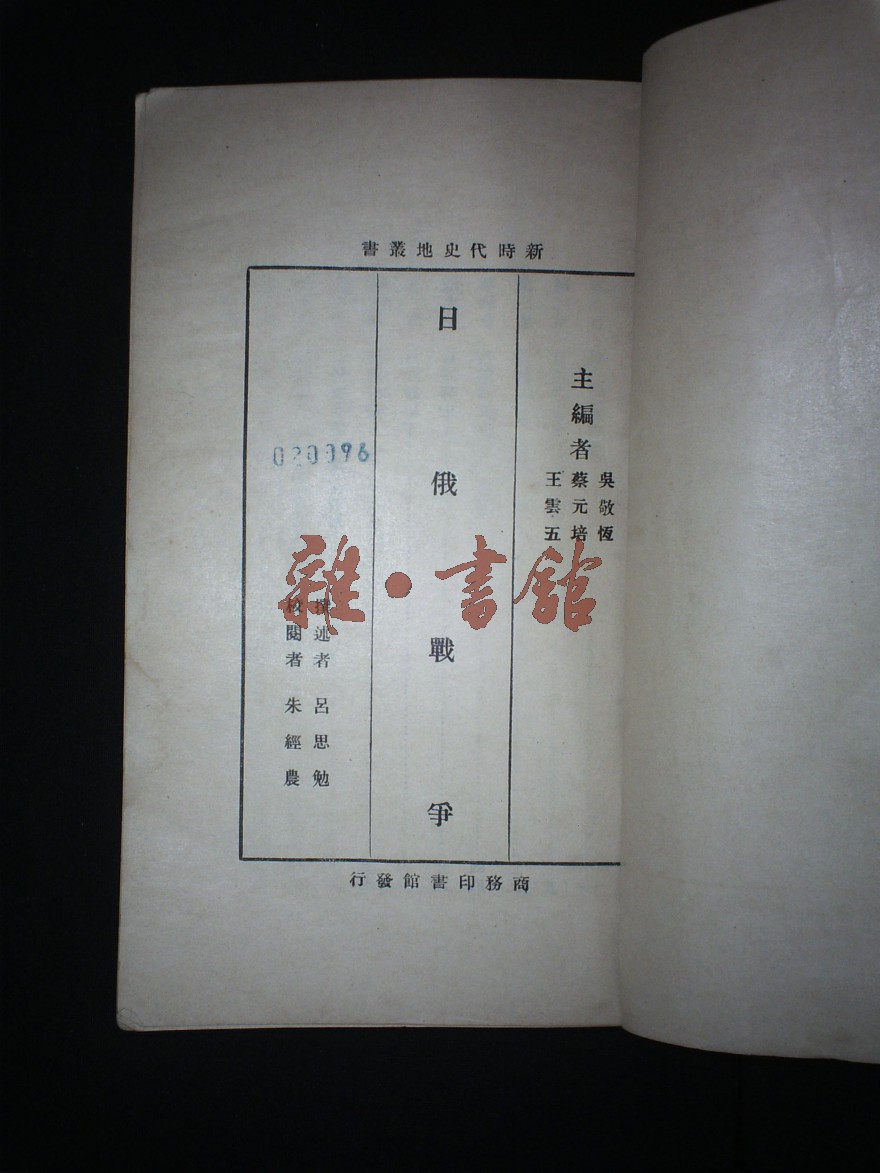 新時代史地叢書
主編者
吳敬恆
蔡元培
王雲五
日俄戰爭
撰述者 呂思勉
校閱者 朱經農
020096
雜·書館
商務印書館發行